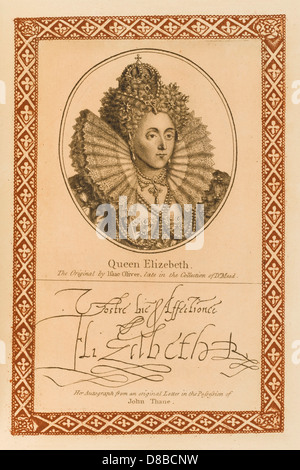 Queen Elizebeth.
The Original by Isaac Oliver, late in the Collection of Dr. Mead.
Vostre bie Affectionee
Elizabeth R
Her Autograph from an original Letter in the Possession of
John Thane.
alamy stock photo
D8BCNW
www.alamy.com